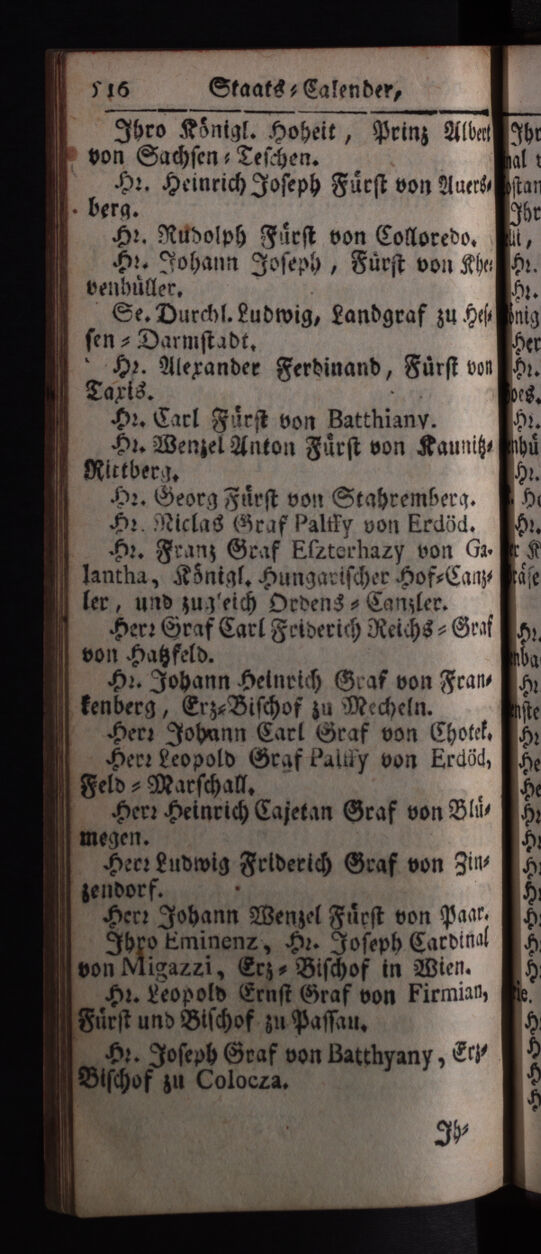 516 Staats-Calender,
Ihro Königl. Hoheit, Prinz Albert
von Sachsen-Teschen.
Hr. Heinrich Joseph Fürst von Auers-
berg.
Hr. Rudolph Fürst von Colloredo.
Hr. Johann Joseph, Fürst von Khe-
venhüller.
Se. Durchl. Ludwig, Landgraf zu Hes-
sen-Darmstadt.
Hr. Alexander Ferdinand, Fürst von
Taxis.
Hr. Carl Fürst von Batthiany.
Hr. Wenzel Anton Fürst von Kaunitz-
Rittberg.
Hr. Georg Fürst von Stahremberg.
Hr. Niclas Graf Palffy von Erdöd.
Hr. Franz Graf Eszterhazy von Ga-
lantha, Königl. Hungarischer Hof-Canz-
ler, und zugleich Ordens-Canzler.
Herr Graf Carl Friderich Reichs-Graf
von Hatzfeld.
Hr. Johann Heinrich Graf von Fran-
kenberg, Erz-Bischof zu Mecheln.
Herr Johann Carl Graf von Chotek.
Herr Leopold Graf Palffy von Erdöd,
Feld-Marschall.
Herr Heinrich Cajetan Graf von Blü-
megen.
Herr Ludwig Friderich Graf von Zin-
zendorf.
Herr Johann Wenzel Fürst von Paar.
Ihro Eminenz, Hr. Joseph Cardinal
von Migazzi, Erz-Bischof in Wien.
Hr. Leopold Ernst Graf von Firmian,
Fürst und Bischof zu Passau.
Hr. Joseph Graf von Batthyany, Erz-
Bischof zu Colocza.
Ih-